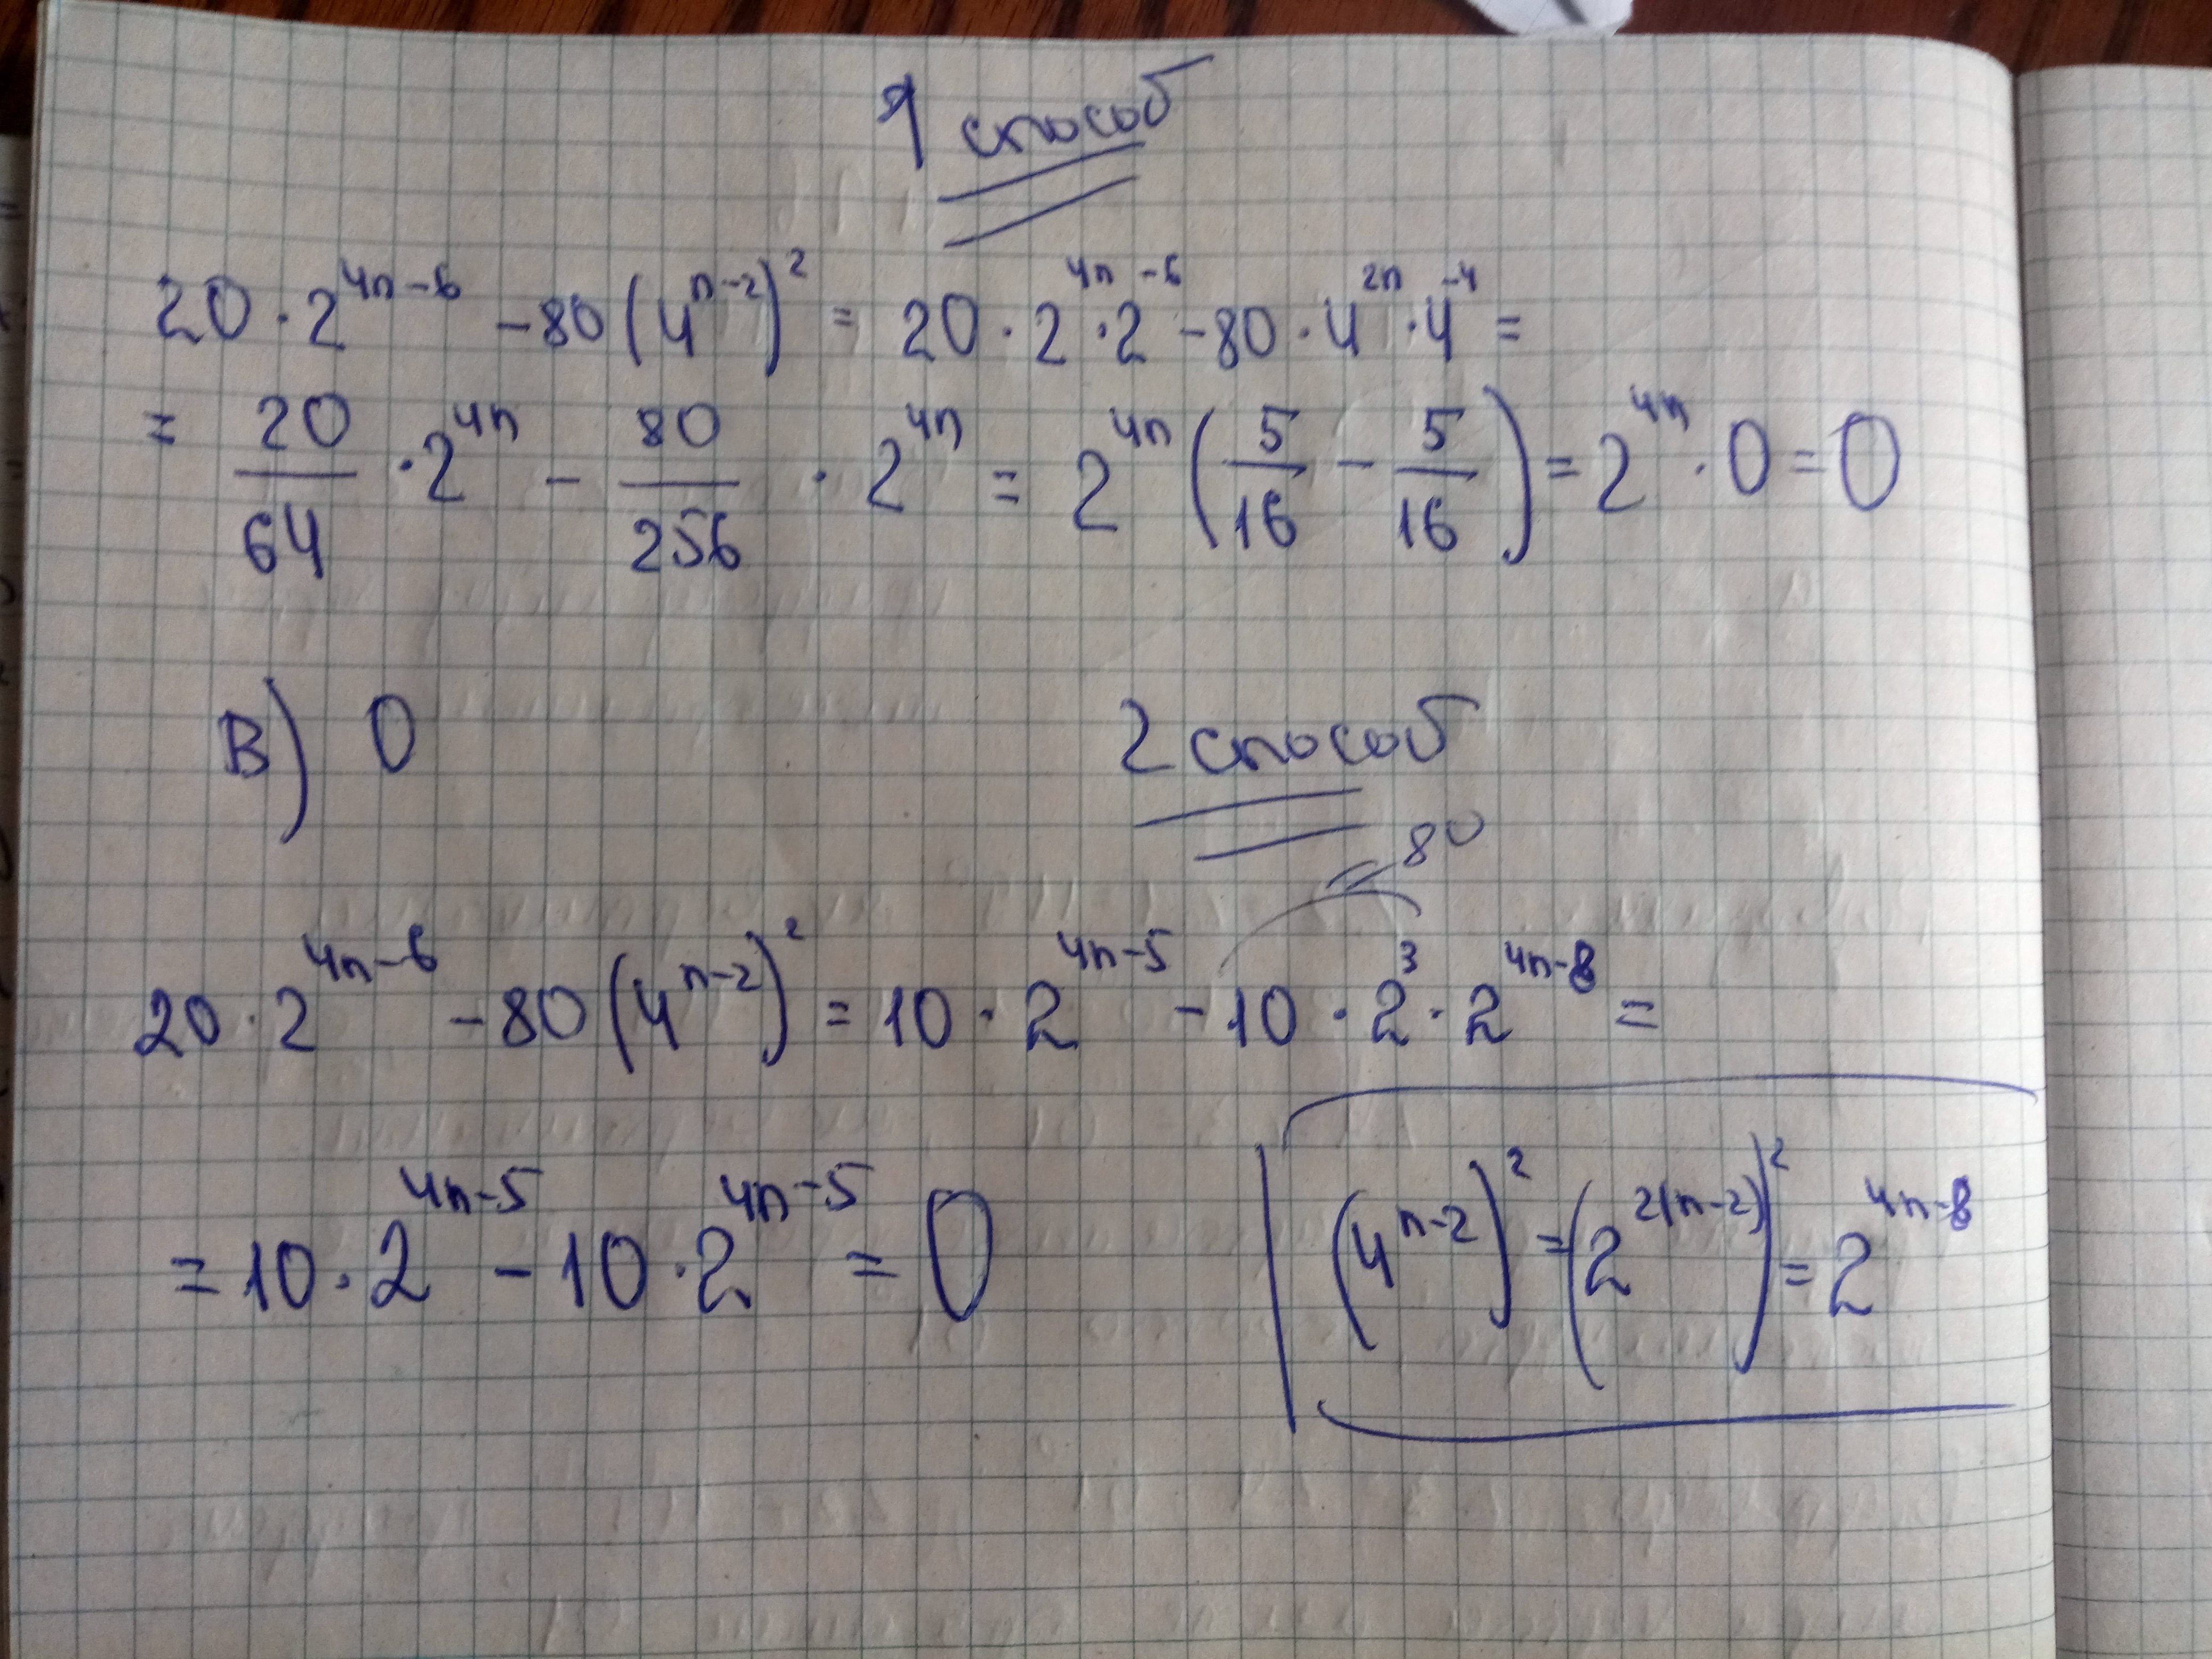 1 способ
20 · 2^(4n-6) - 80 (4^(n-2))^2 = 20 · 2^(4n) · 2^(-6) - 80 · 4^(2n) · 4^(-4) =
= 20/64 · 2^(4n) - 80/256 · 2^(4n) = 2^(4n) (5/16 - 5/16) = 2^(4n) · 0 = 0
В) 0
2 способ
= 80
20 · 2^(4n-6) - 80 (4^(n-2))^2 = 10 · 2^(4n-5) - 10 · 2^3 · 2^(4n-8) =
= 10 · 2^(4n-5) - 10 · 2^(4n-5) = 0
(4^(n-2))^2 = (2^(2(n-2)))^2 = 2^(4n-8)